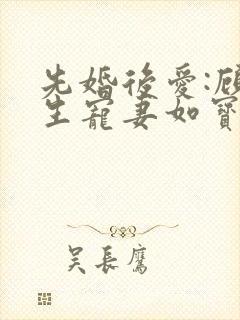 先婚後愛:顧
生寵妻如寶
吴長鷹